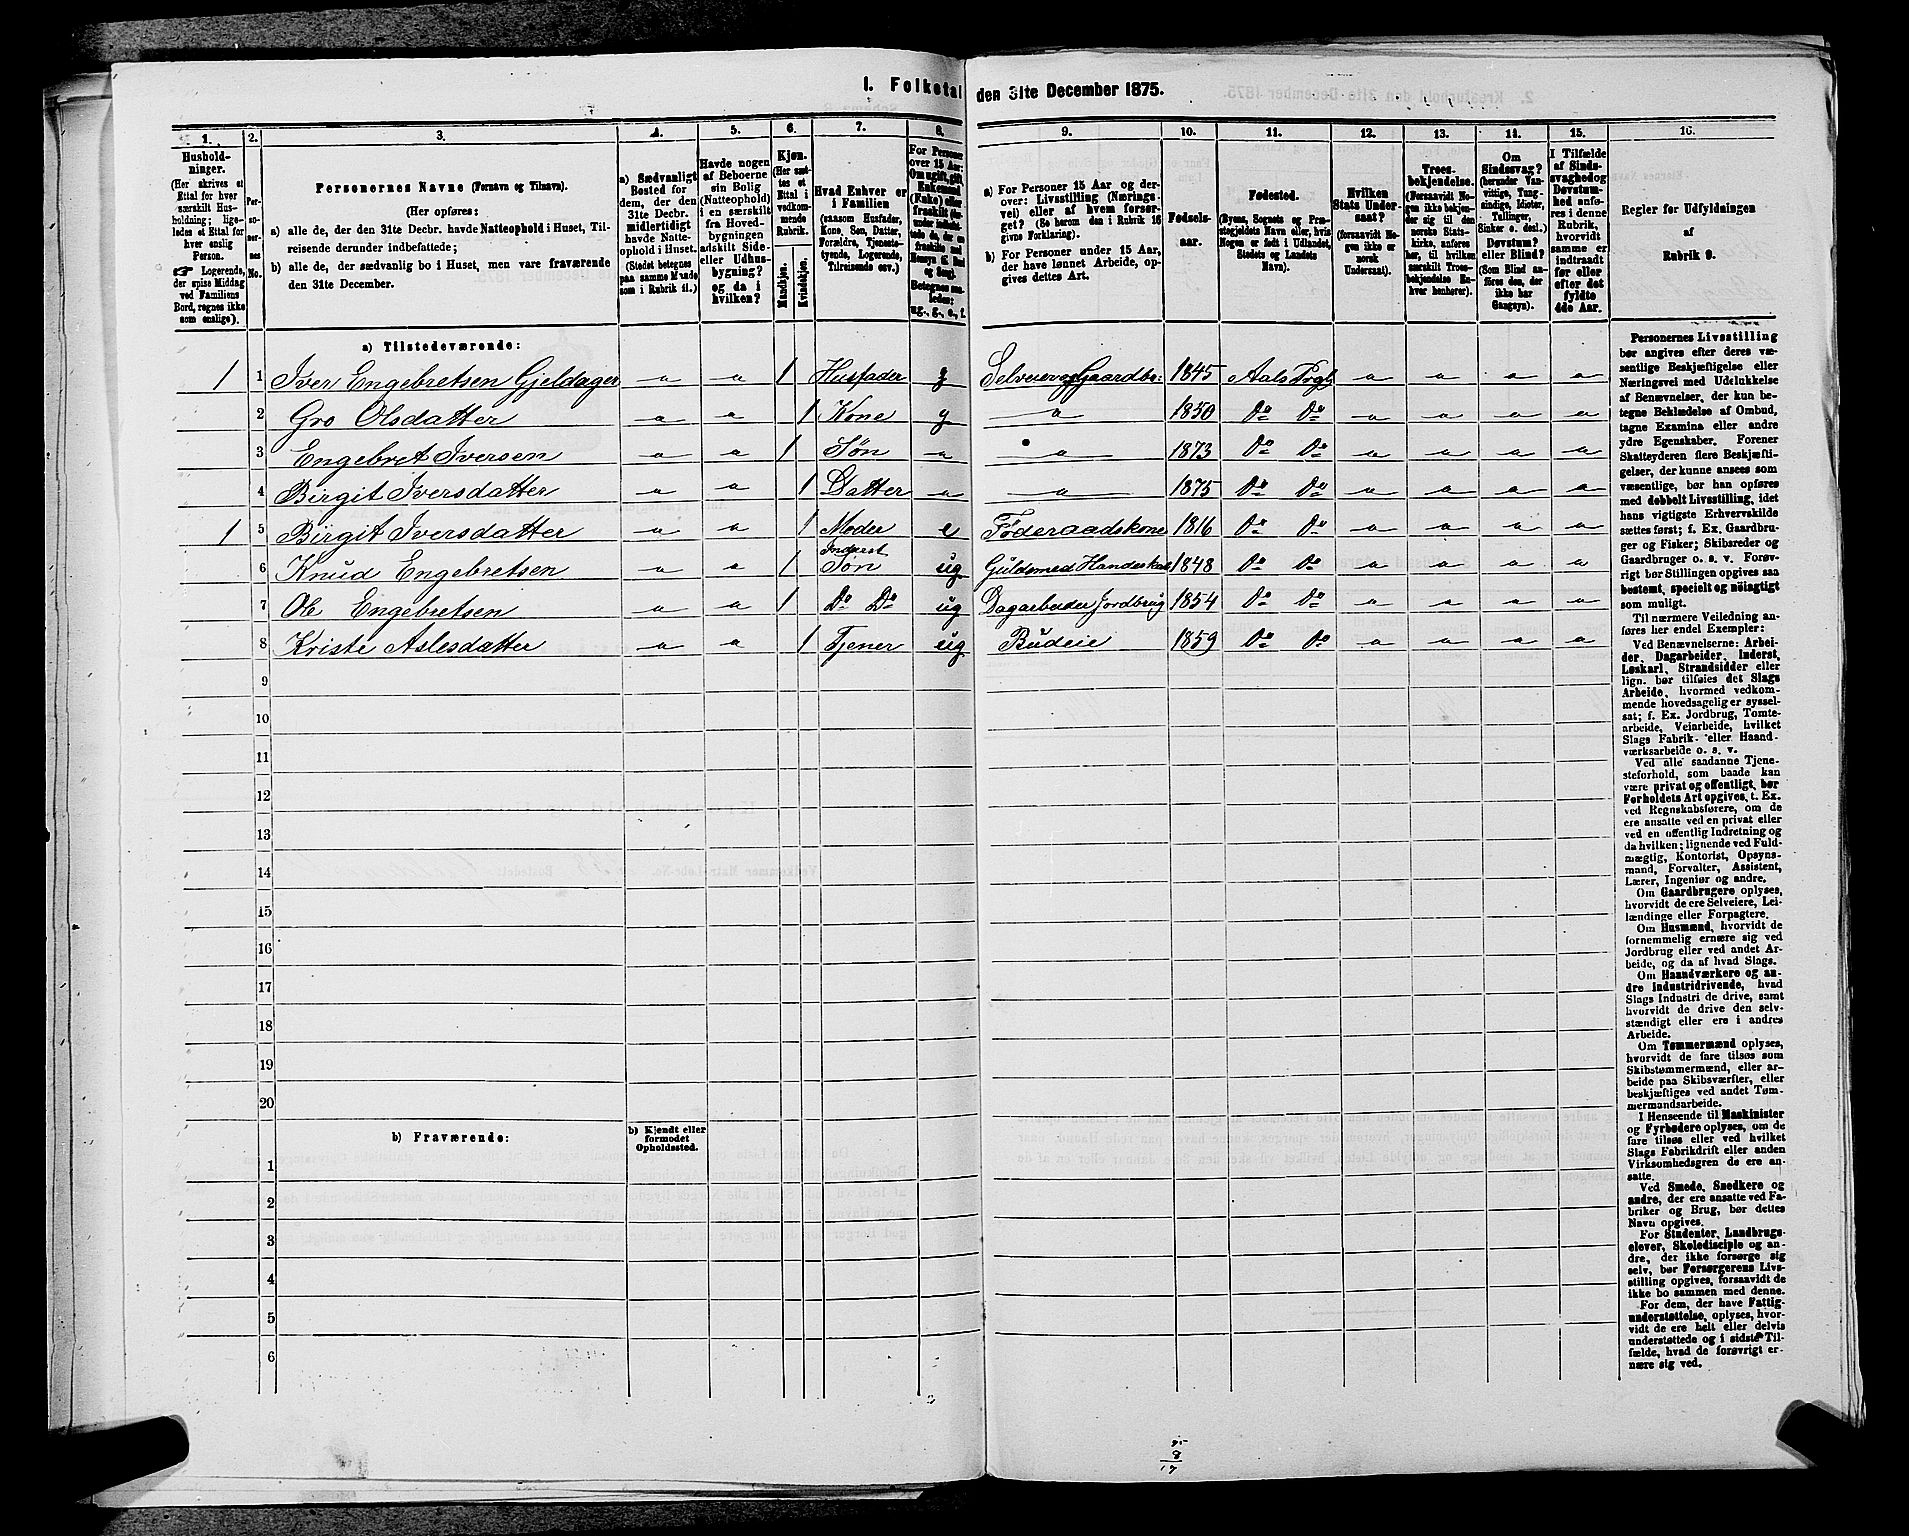 I. Folketal den 31te December 1875.
1. 2. 3. 4. 5. 6. 7. 8. 9. 10. 11. 12. 13. 14. 15. 16.
Hushold-
ninger.
(Her skrives et
Ettal for hver
særskilt Hus-
holdning; lige-
ledes et Ettal for
hver enslig
Person.
☞ Logerende,
der spise Middag
ved Familiens
Bord, regnes ikke
som enslige).
Per-
so-
ner-
nes
No.
Personernes Navne (Fornavn og Tilnavn).
(Her opføres:
a) alle de, der den 31te Decbr. havde Natteophold i Huset, Til-
reisende derunder indbefattede;
b) alle de, der sædvanlig bo i Huset, men vare fraværende
den 31te December.
a) Sædvanligt
Bosted for
dem, der den
31te Decbr.
midlertidigt
havde Natte-
ophold i Huset.
(Stedet betegnes
paa samme Maade
som i Rubrik 11.)
Havde nogen
af Beboerne
sin Bolig
(Natteophold)
i en særskilt
fra Hoved-
bygningen
adskilt Side-
eller Udhus-
bygning?
og da i
hvilken?
Kjøn.
(Her sæt-
tes et
Ettal i
vedkom-
mende
Rubrik.
Mandkjøn.
Kvindekjøn.
Hvad Enhver er
i Familien
(saasom Husfader,
Kone, Søn, Datter,
Forældre, Tjeneste-
tyende, Logerende,
Tilreisende osv.)
For Personer
over 15 Aar:
Om ugift, gift,
Enkemand
(Enke) eller
fraskilt
Betegnes saa-
ledes:
ug., g., e., f.
a) For Personer 15 Aar og der-
over: Livsstilling (Nærings-
vei) eller af hvem forsør-
get? (Se herom den i Rubrik 16
givne Forklaring).
b) For Personer under 15 Aar,
der have lønnet Arbeide, op-
gives dettes Art.
Fødsels-
aar.
Fødested.
(Byens, Sognets og Præ-
stegjeldets Navn eller, hvis
Nogen er født i Udlandet,
Stedets og Landets
Navn).
Hvilken
Stats Under-
saat?
(forsaavidt No-
gen ikke er
norsk
Undersaat).
Troes-
bekjendelse.
(Forsaavidt No-
gen ikke bekjen-
der sig til den
norske Stats-
kirke, anføres
her, til hvilken
særskilt Troes-
bekjendelse En-
hver henhører).
Om
Sindssvag?
(herunder Van-
vittige, Tung-
sindige, Idioter,
Tullinger,
Sinker o. desl.).
Døvstum?
eller Blind?
(Som Blind an-
føres den, der
ikke har
Gangsyn).
I Tilfælde
af Sinds-
svaghed og
Døvstum-
hed anfø-
res i denne
Rubrik,
hvorvidt
samme er
indtraadt
før eller
efter det
fyldte
4de Aar.
Regler for Udfyldningen
af
Rubrik 9.
a) Tilstedeværende:
1 1 Iver Engebretsen Gjeldager „ „ 1 Husfader g Selveier Gaardbr: 1845 Aals Prgl „ „ „ „
2 Gro Olsdatter „ „ 1 Kone g „ 1850 Do Do „ „ „ „
3 Engebret Iversen „ „ 1 Søn „ „ 1873 Do Do „ „ „ „
4 Birgit Iversdatter „ „ 1 Datter „ „ 1875 Do Do „ „ „ „
1 5 Birgit Iversdatter „ „ 1 Moder e Føderaadskone 1816 Do Do „ „ „ „
6 Knud Engebretsen „ „ 1 Inderst Søn ug Guldsmed 1848 Do Do „ „ „ „
7 Ole Engebretsen „ „ 1 Do Do ug Dagarbeider Jordbrug 1854 Do Do „ „ „ „
8 Kriste Aslesdatter „ „ 1 Tjener ug Budeie 1859 Do Do „ „ „ „
9
10
11
12
13
14
15
16
17
18
19
20
b) Fraværende:
b) Kjendt eller
formodet
Opholdssted.
1
2
3
4
5
6
Personernes Livsstilling
bør angives efter deres væ-
sentlige Beskjæftigelse eller
Næringsvei med Udelukkelse
af Benævnelser, der kun be-
tegne Beklædelse af Ombud,
tagne Examina eller andre
ydre Egenskaber. Forener
Skatteyderen flere Beskjæfti-
gelser, der kunne ansees som
væsentlige, bør han opføres
med dobbelt Livsstilling, idet
hans vigtigste Erhvervskilde
sættes først; f. Ex. Gaardbru-
ger og Fisker; Skibsreder og
Gaardbruger o. s. v. Forøv-
rigt bør Stillingen opgives saa
bestemt, specielt og nøiagtigt
som muligt.
Til nærmere Veiledning an-
føres her endel Exempler:
Ved Benævnelserne: Arbei-
der, Dagarbeider, Inderst,
Løskarl, Strandsidder eller
lign. bør tilføies det Slags
Arbeide, hvormed vedkom-
mende hovedsagelig er syssel-
sat; f. Ex. Jordbrug, Tomte-
arbeide, Veiarbeide, hvilket
Slags Fabrik- eller Haand-
værksarbeide o. s. v.
Ved alle saadanne Tjene-
steforhold, som baade kan
være privat og offentligt, bør
Forholdets Art opgives, t. Ex.
ved Regnskabsførere, om de
ere ansatte ved en privat eller
ved en offentlig Indretning og
da hvilken; lignende ved Fuld-
mægtig, Kontorist, Opsyns-
mand, Forvalter, Assistent,
Lærer, Ingeniør og andre.
Om Gaardbrugere oplyses,
hvorvidt de ere Selveiere, Lei-
lændinge eller Forpagtere.
Om Husmænd, hvorvidt de
fornemmelig ernære sig ved
Jordbrug eller ved andet Ar-
beide, og da af hvad Slags.
Om Haandværkere og an-
dre Industridrivende, hvad
Slags Industri de drive, samt
hvorvidt de drive den selv-
stændigt eller ere i andres
Arbeide.
Om Tømmermænd oplyses,
hvorvidt de fare tilsøs som
Skibstømmermænd, eller ar-
beide paa Skibsværfter, eller
beskjæftiges ved andet Tøm-
mermandsarbeide.
I Henseende til Maskinister
og Fyrbødere oplyses, om de
fare tilsøs eller ved hvilket
Slags Fabrikdrift eller anden
Virksomhedsgren de ere an-
satte.
Ved Smede, Snedkere og
andre, der ere ansatte ved Fa-
briker og Brug, bør dettes
Navn opgives.
For Studenter, Landbrugs-
elever, Skoledisciple og an-
dre, der ikke forsørge sig
selv, bør Forsørgerens Livs-
stilling opgives, forsaavidt de
ikke bo sammen med denne.
For dem, der have Fattig-
understøttelse, oplyses, hvor-
vidt de ere helt eller delvis
understøttede og i sidste Til-
fælde, hvad de forøvrigt er-
nære sig ved.
8
17